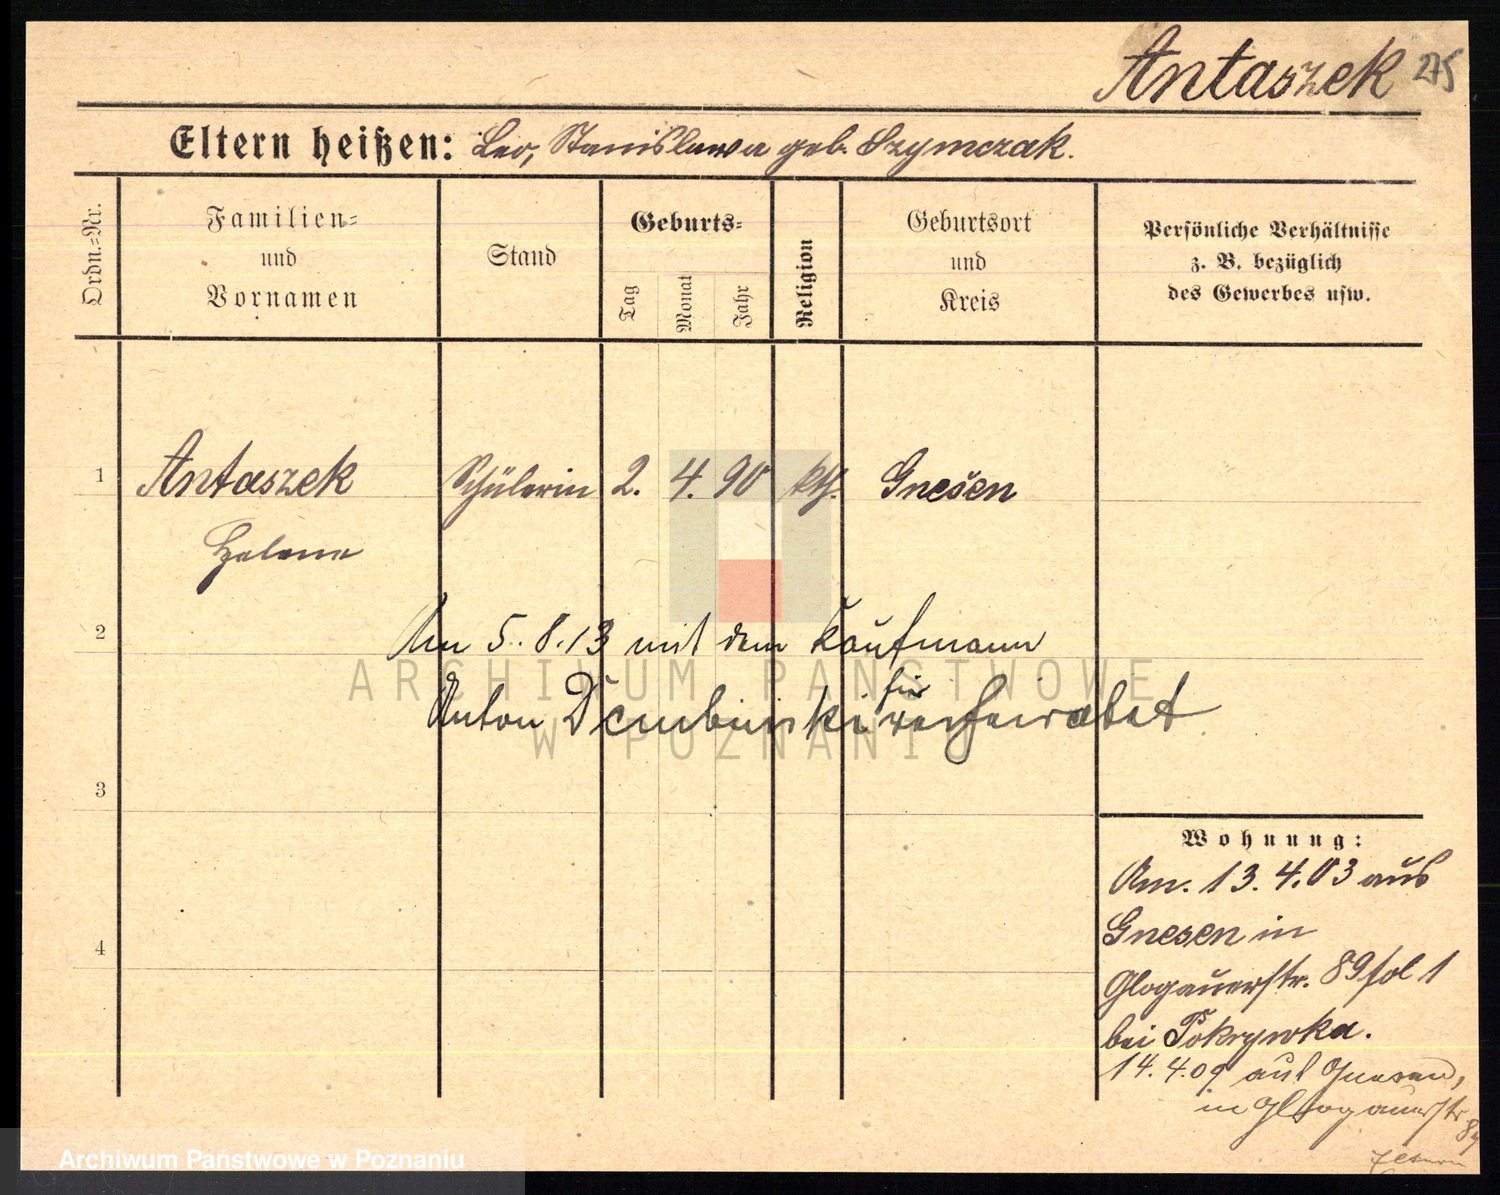 Antaszek 275
Eltern heißen: Leo, Stanislawa geb. Szymczak.
Ordn.=Nr.
Familien=
und
Vornamen
Stand
Geburts=
Tag
Monat
Jahr
Religion
Geburtsort
und
Kreis
Persönliche Verhältnisse
z. B. bezüglich
des Gewerbes usw.
1 Antaszek Schülerin 2. 4. 90 kth. Gnesen
Helene
2
Am 5.8.13 mit dem Kaufmann
Anton Dembinski hier verheiratet
3
4
Wohnung:
Am. 13.4.03 aus
Gnesen in
Glogauerstr. 89 fol 1
bei Pokrywka.
14.4.09 aus Gnesen,
in Glogauerstr
89
ARCHIWUM PAŃSTWOWE
W POZNANIU
Archiwum Państwowe w Poznaniu